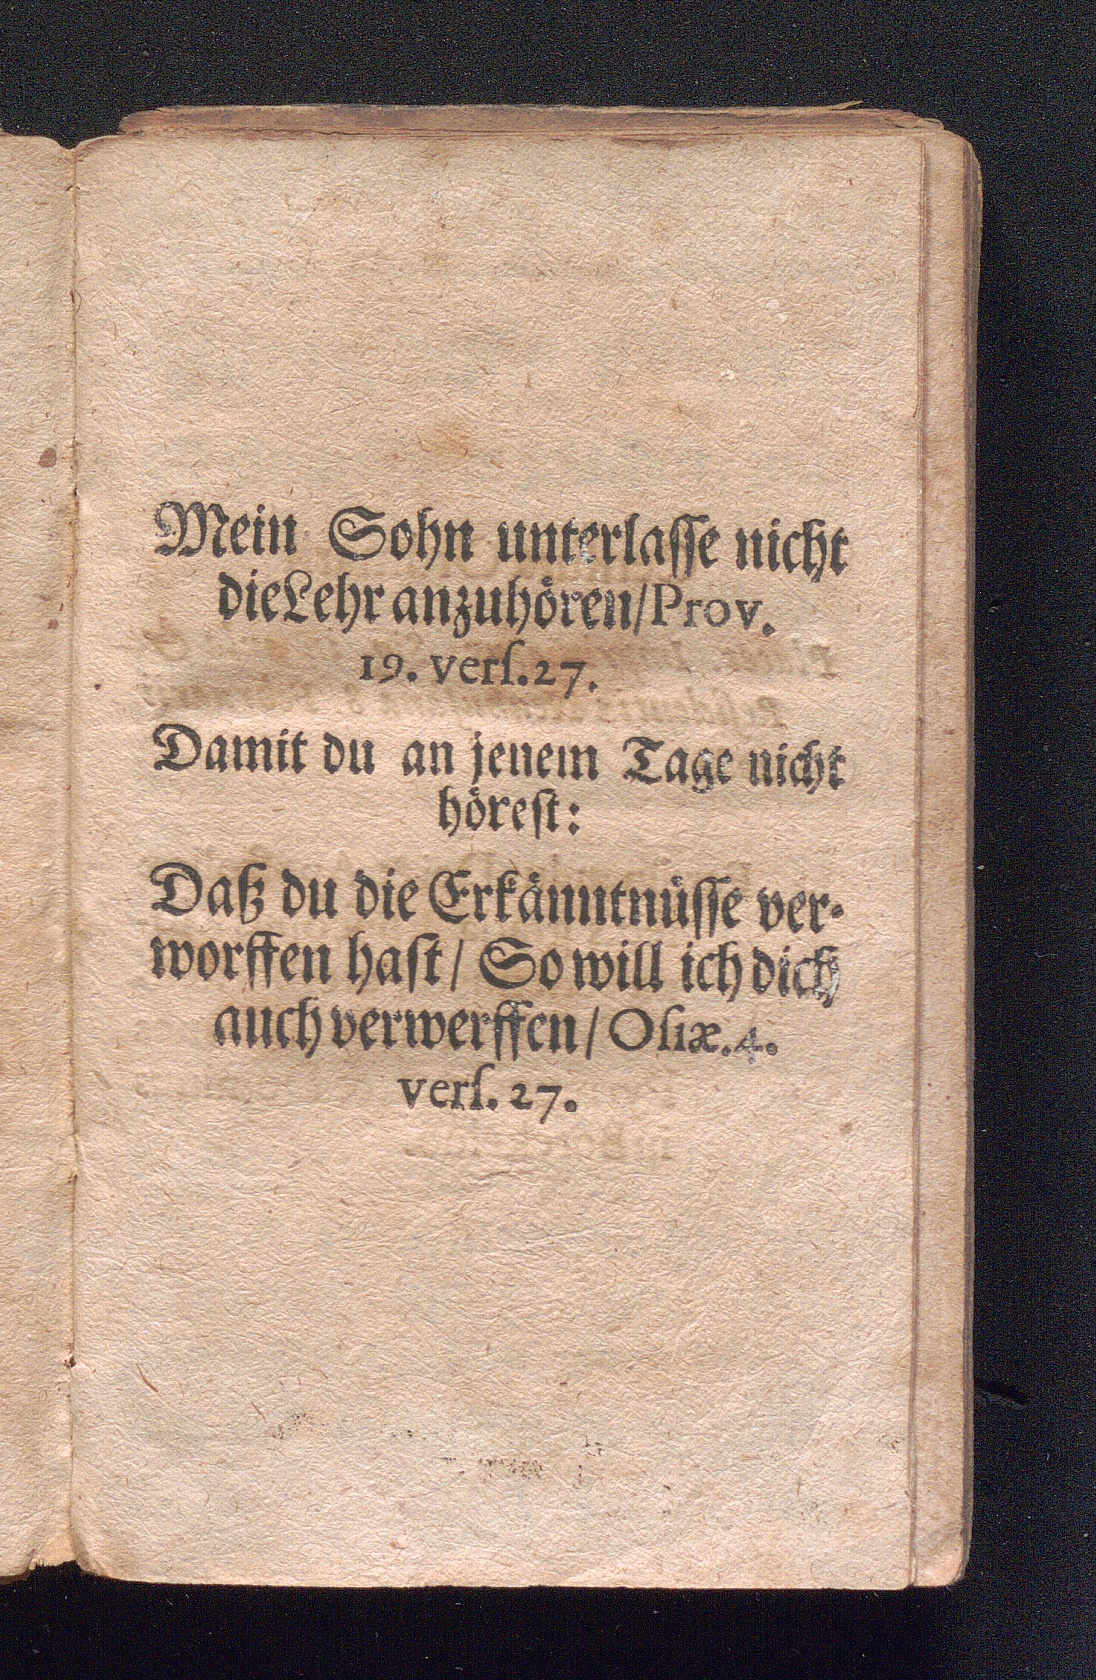 Mein Sohn unterlasse nicht
die Lehr anzuhören/Prov.
19. vers. 27.
Damit du an jenem Tage nicht
hörest:
Daß du die Erkänntnüsse ver-
worffen hast/ So will ich dich
auch verwerffen/ Osiæ. 4.
vers. 27.